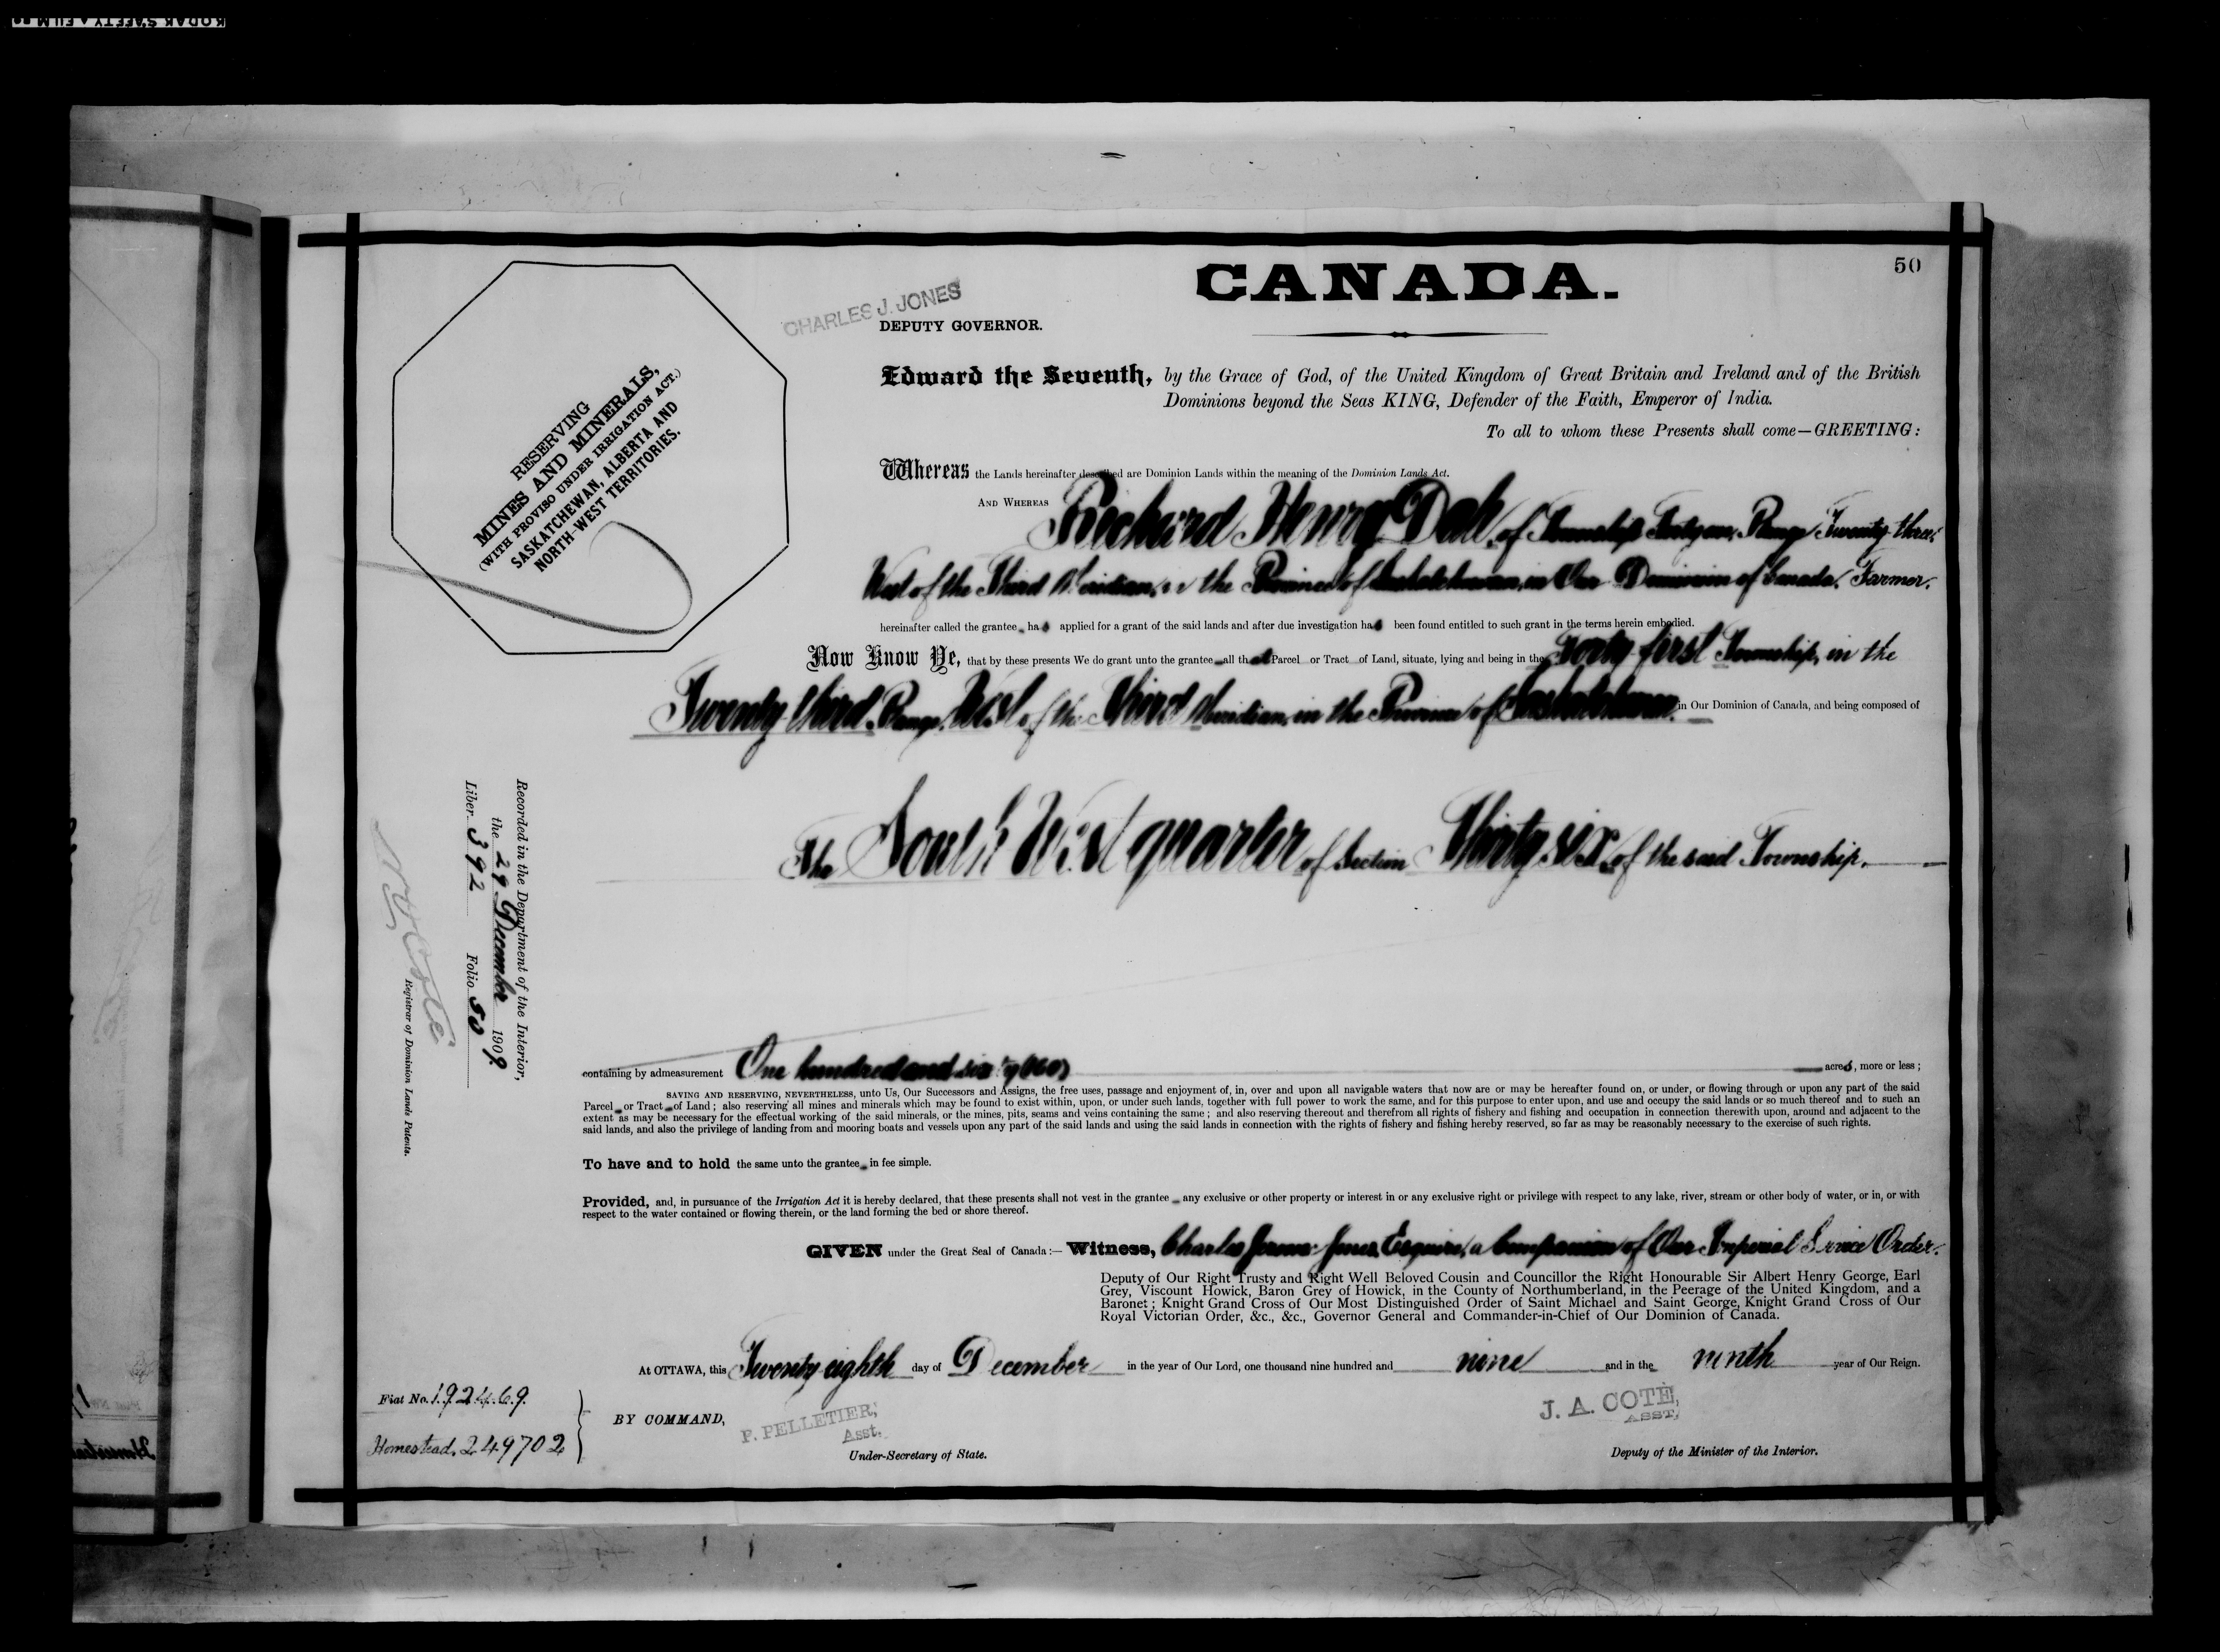 50
CANADA.
CHARLES J. JONES
DEPUTY GOVERNOR.
RESERVING
MINES AND MINERALS,
(WITH PROVISO UNDER IRRIGATION ACT.)
SASKATCHEWAN, ALBERTA AND
NORTH-WEST TERRITORIES.
Edward the Seventh, by the Grace of God, of the United Kingdom of Great Britain and Ireland and of the British
Dominions beyond the Seas KING, Defender of the Faith, Emperor of India.
To all to whom these Presents shall come—GREETING:
Whereas the Lands hereinafter described are Dominion Lands within the meaning of the Dominion Lands Act.
AND WHEREAS Richard Henry Dale, of Township Forty one, Range Twenty-three,
West of the Third Meridian, in the Province of Saskatchewan, in Our Dominion of Canada, Farmer,
hereinafter called the grantee has applied for a grant of the said lands and after due investigation has been found entitled to such grant in the terms herein embodied.
Now Know Ye, that by these presents We do grant unto the grantee all that Parcel or Tract of Land, situate, lying and being in the Forty first Township, in the
Twenty-third Range, West of the Third Meridian, in the Province of Saskatchewan, in Our Dominion of Canada, and being composed of
The South West quarter of Section Thirty six, of the said Township.
Recorded in the Department of the Interior,
the 29 December 1909.
Liber 392 Folio 50
N. O. Coté
Registrar of Dominion Lands Patents.
containing by admeasurement One hundred and sixty (160) acres, more or less;
SAVING AND RESERVING, NEVERTHELESS, unto Us, Our Successors and Assigns, the free uses, passage and enjoyment of, in, over and upon all navigable waters that now are or may be hereafter found on, or under, or flowing through or upon any part of the said
Parcel or Tract of Land; also reserving all mines and minerals which may be found to exist within, upon, or under such lands, together with full power to work the same, and for this purpose to enter upon, and use and occupy the said lands or so much thereof and to such an
extent as may be necessary for the effectual working of the said minerals, or the mines, pits, seams and veins containing the same; and also reserving thereout and therefrom all rights of fishery and fishing and occupation in connection therewith upon, around and adjacent to the
said lands, and also the privilege of landing from and mooring boats and vessels upon any part of the said lands and using the said lands in connection with the rights of fishery and fishing hereby reserved, so far as may be reasonably necessary to the exercise of such rights.
To have and to hold the same unto the grantee in fee simple.
Provided, and, in pursuance of the Irrigation Act it is hereby declared, that these presents shall not vest in the grantee any exclusive or other property or interest in or any exclusive right or privilege with respect to any lake, river, stream or other body of water, or in, or with
respect to the water contained or flowing therein, or the land forming the bed or shore thereof.
GIVEN under the Great Seal of Canada:— Witness, Charles Jerome Jones, Esquire, a Companion of Our Imperial Service Order.
Deputy of Our Right Trusty and Right Well Beloved Cousin and Councillor the Right Honourable Sir Albert Henry George, Earl
Grey, Viscount Howick, Baron Grey of Howick, in the County of Northumberland, in the Peerage of the United Kingdom, and a
Baronet; Knight Grand Cross of Our Most Distinguished Order of Saint Michael and Saint George, Knight Grand Cross of Our
Royal Victorian Order, &c., &c., Governor General and Commander-in-Chief of Our Dominion of Canada.
At OTTAWA, this Twenty eighth day of December in the year of Our Lord, one thousand nine hundred and nine and in the ninth year of Our Reign.
Fiat No. 192469.
Homestead, 249702
BY COMMAND,
P. PELLETIER,
Asst.
Under-Secretary of State.
J. A. COTÉ,
ASST.
Deputy of the Minister of the Interior.